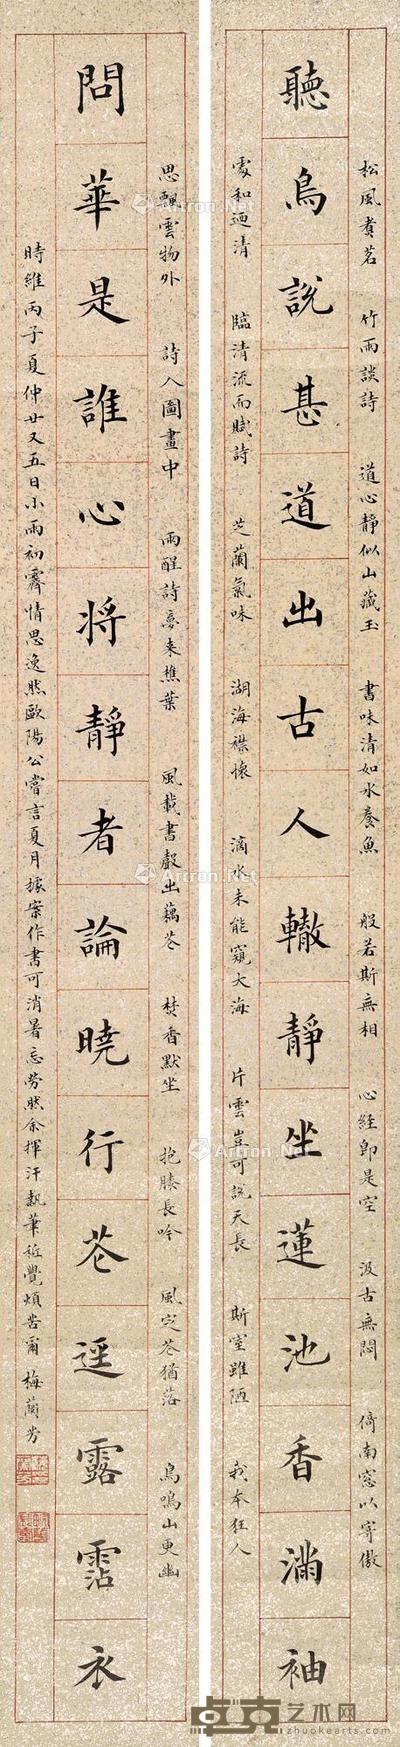 聽鳥說甚道出古人轍靜坐蓮池香滿袖
松風煮茗 竹雨談詩 道心靜似山藏玉 書味清如水養魚 般若斯無相 心經即是空 汲古無悶 倚南窓以寄傲
處和迺清 臨清流而賦詩 芝蘭氣味 湖海襟懷 滴水未能窺大海 片雲豈可說天長 斯室雖陋 我本狂人
問華是誰心将靜者論曉行苍逕露霑衣
思飄雲物外 詩入圖畫中 雨醒詩夢來樵葉 風載書聲出藕苍 焚香默坐 抱膝長吟 風定苍猶落 鳥鳴山更幽
時維丙子夏仲廿又五日小雨初霽情思逸然歐陽公嘗言夏月據案作書可消暑忘勞然余揮汗執筆祗覺煩苦爾 梅蘭芳
Artron.Net
卓克艺术网
zhuokearts.com